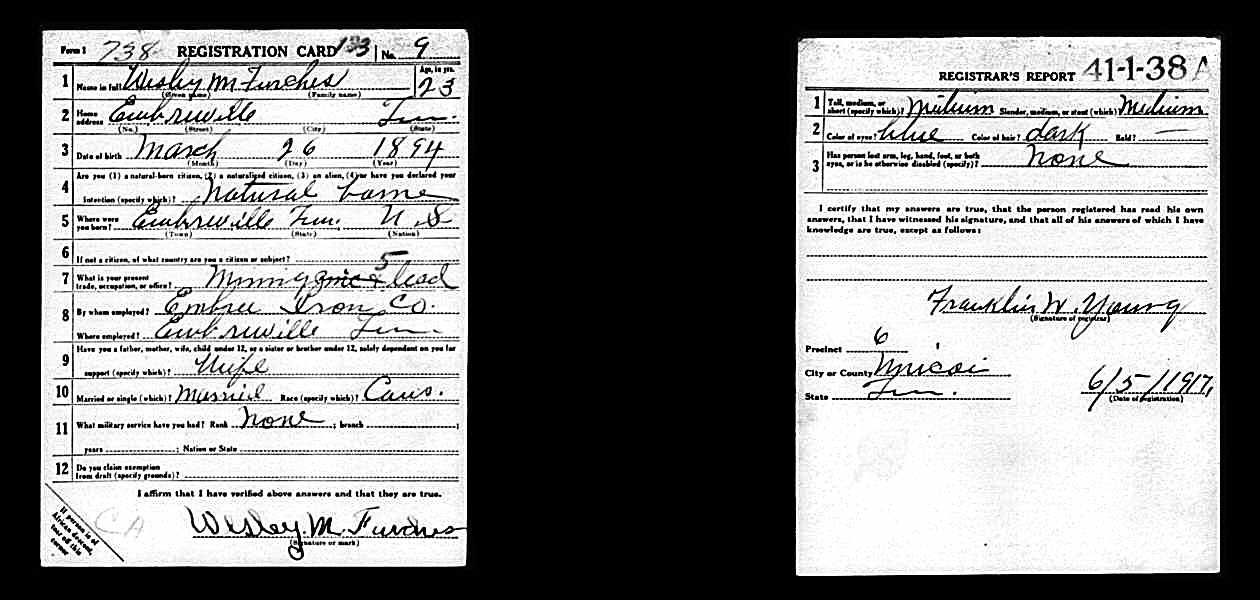 Form 1 738 REGISTRATION CARD 133 No. 9
1 Name in full Wesley M Furches Age, in yrs. 23
(Given name) (Family name)
2 Home address Embreville Tenn.
(No.) (Street) (City) (State)
3 Date of birth March 26 1894
(Month) (Day) (Year)
4 Are you (1) a natural-born citizen, (2) a naturalized citizen, (3) an alien, (4) or have you declared your
intention (specify which)? Natural borne
5 Where were you born? Embreville Tenn. U. S
(Town) (State) (Nation)
6 If not a citizen, of what country are you a citizen or subject?
5
7 What is your present trade, occupation, or office? Mining zinc & lead
8 By whom employed? Embree Iron Co.
Where employed? Embreville Tenn
9 Have you a father, mother, wife, child under 12, or a sister or brother under 12, solely dependent on you for
support (specify which)? Wife
10 Married or single (which)? Married Race (specify which)? Cauc.
11 What military service have you had? Rank None ; branch ;
years ; Nation or State
12 Do you claim exemption from draft (specify grounds)?
I affirm that I have verified above answers and that they are true.
C A
Wesley. M. Furches
(Signature or mark)
If person is of
African descent,
tear off this
corner
REGISTRAR'S REPORT 41-1-38 A
1 Tall, medium, or short (specify which)? Medium Slender, medium, or stout (which)? Medium
2 Color of eyes? blue Color of hair? dark Bald? —
3 Has person lost arm, leg, hand, foot, or both eyes, or is he otherwise disabled (specify)? None
I certify that my answers are true, that the person registered has read his own
answers, that I have witnessed his signature, and that all of his answers of which I have
knowledge are true, except as follows:
Franklin W. Young
(Signature of registrar)
Precinct 6
City or County Unicoi
State Tenn.
6/5/1917,
(Date of registration)